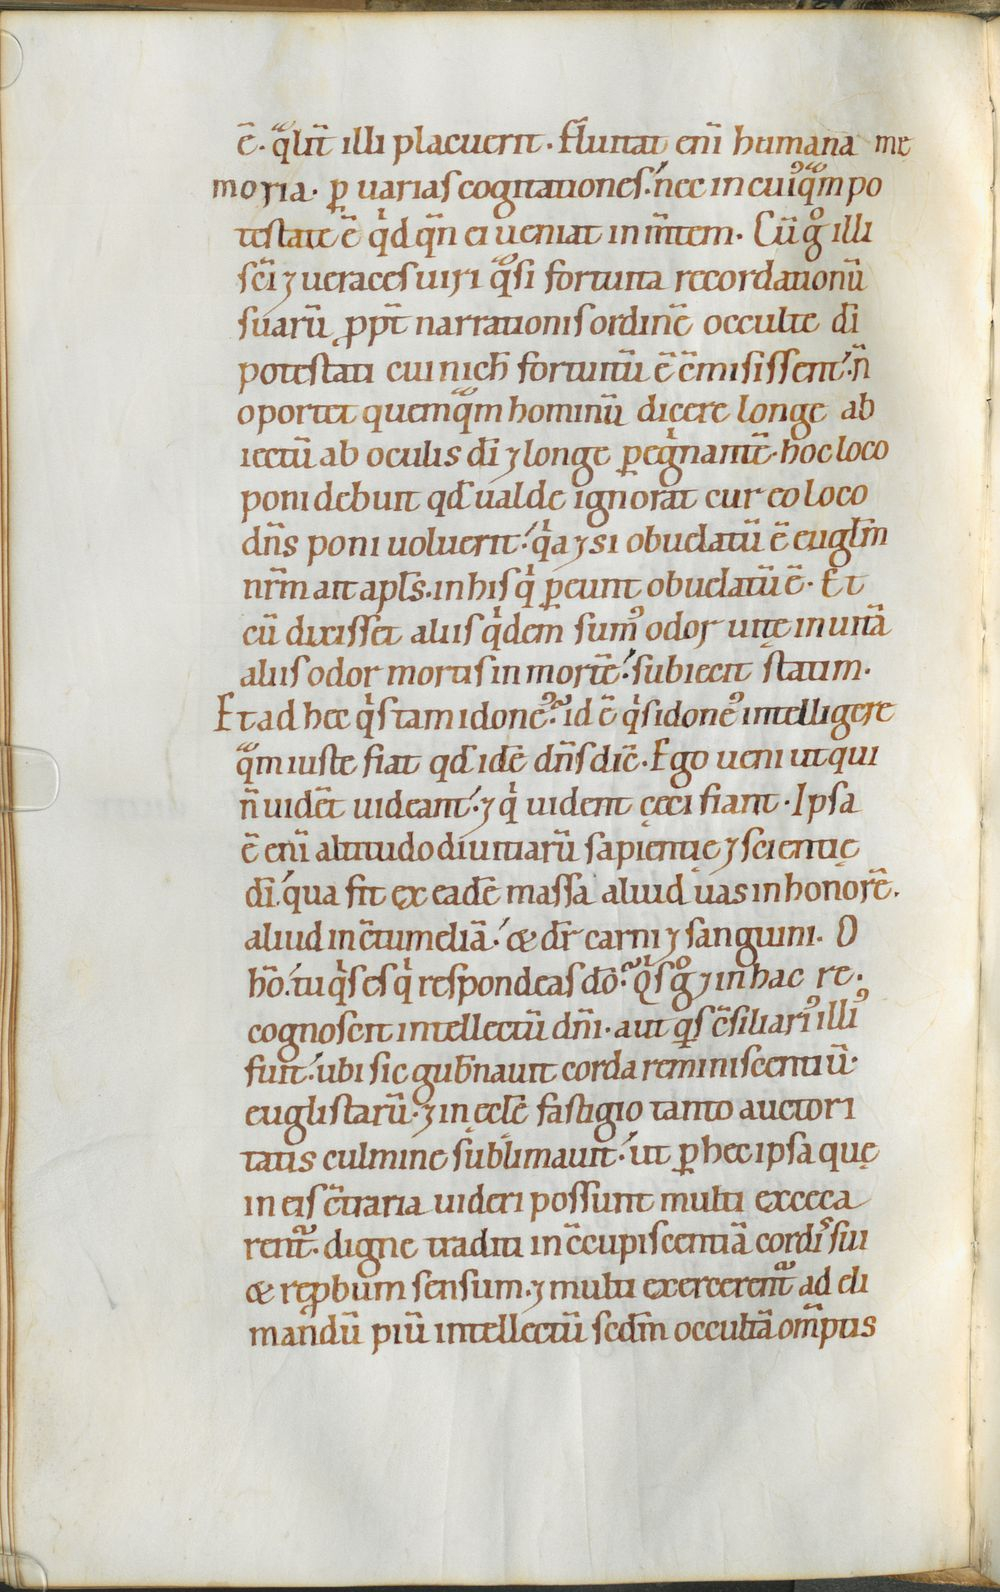 ē. qͣlit̄ illi placuerit. fluitat eni̅ humana me
moria. ꝑ uarias cogitationes. nec in cuiꝰqͣm po
testate ē qͥd qn̄ ei ueniat in m̄tem. Cū gͦ illi
sc̄i ⁊ ueraces uiri qͣsi fortuita recordationū
suarū ꝓpt̄ narrationis ordinē occulte dī
potestati cui nich̄ fortuitū ē c̄misissent. n̄
oportet quemqͣm hominū dicere longe ab
iectū ab oculis dī ⁊ longe ꝑegͥnantē. hoc loco
poni debuit qd̄ ualde ignorat cur eo loco
dn̄s poni uoluerit. qͥa ⁊ si obuelatū ē euglm̄
nr̄m ait apl̄s. in his qͥ ꝑeunt obuelatū ē. Et
cū dixisset aliis qͥdem sumꝰ odor uitę in uitā
aliis odor mortis in mortē. subiecit statim.
Et ad hec qͥs tam idoneꝰ? id ē qͥs idoneꝰ intelligere
qͣm iuste fiat qd̄ idē dn̄s dic̄. Ego ueni ut qui
n̄ uidēt uideant. ⁊ qͥ uident cęci fiant. Ipsa
ē eni̅ altitudo diuitiarū sapientię ⁊ scientię
dī. qua fit ex eadē massa aliud uas in honorē.
aliud in c̄tumeliā. & dr̄ carni ⁊ sanguini. O
hō. tu qͥs es qͥ respondeas dō? Qͥs gͦ ⁊ in hac re.
cognoscit intellectū dn̄i. aut qͥs c̄siliariꝰ illiꝰ
fuit. ubi sic gub̄nauit corda reminiscentiū
euglistarū. ⁊ in ęccl̄ę fastigio tanto auctori
tatis culmine sublimauit. ut ꝑ hec ipsa quę
in eis c̄traria uideri possunt multi exceca
rent᷑. digne traditi in c̄cupiscentiā cordis sui
& reꝓbum sensum. ⁊ multi exercerent᷑ ad eli
mandū piū intellectū scdm̄ occultā om̄ptis